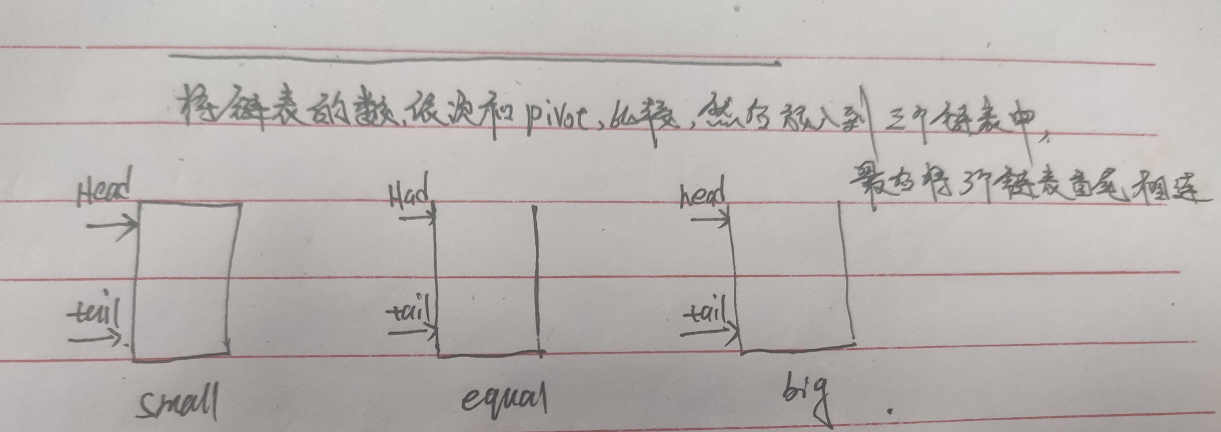 将链表的数,依次和pivot,比较,然后放入到三个链表中,
最后将3个链表首尾相连
Head Had head
tail tail tail
small equal big.